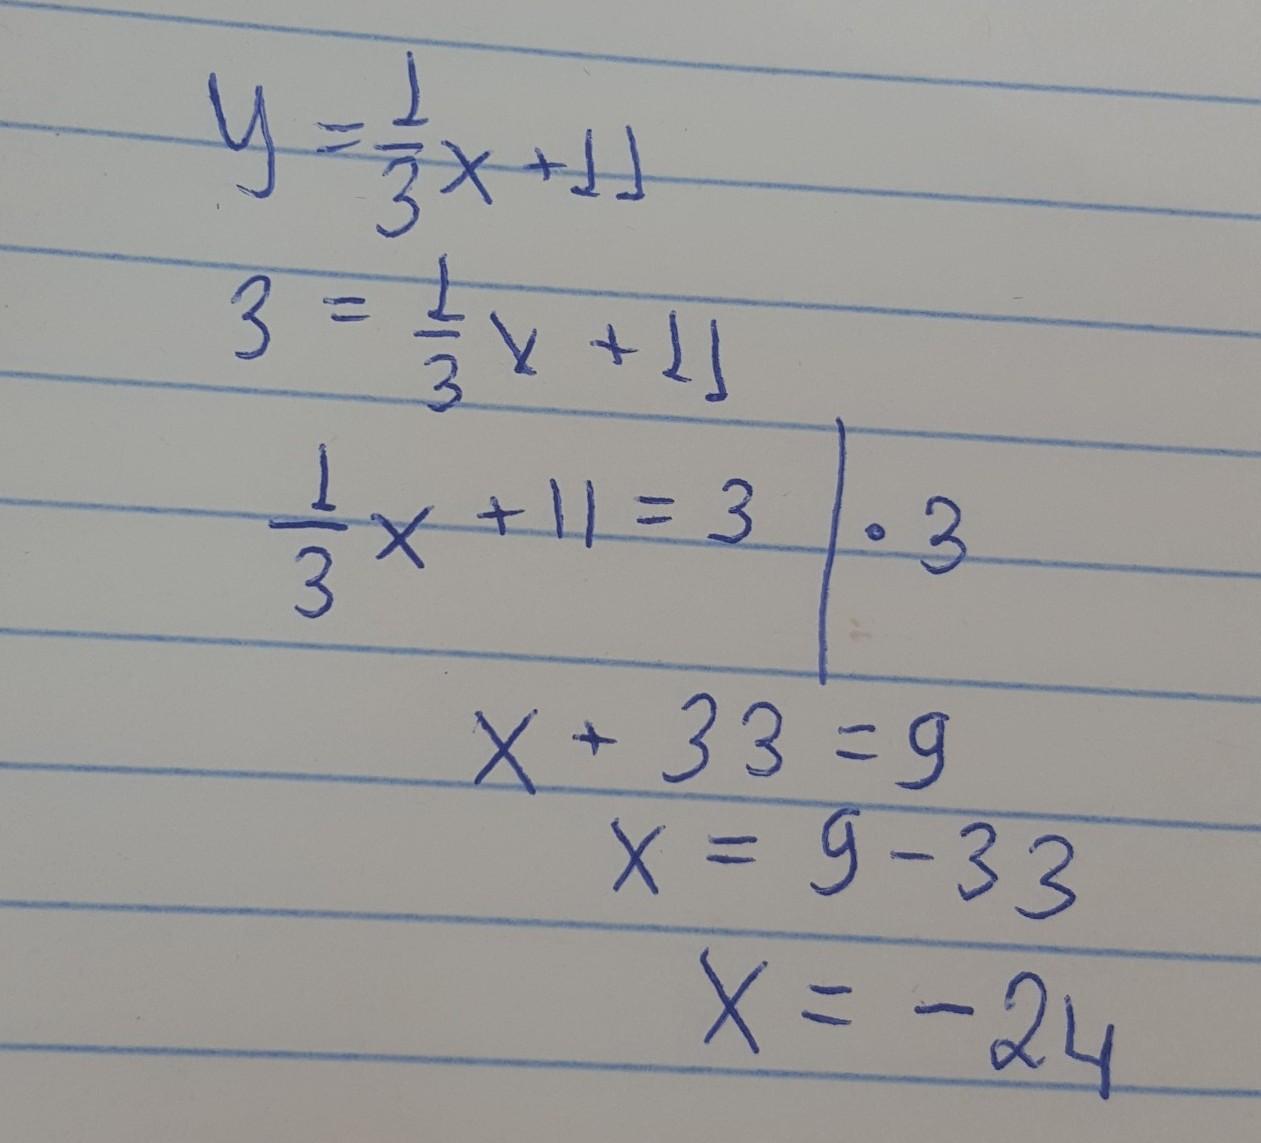 y = 1/3 x + 11
3 = 1/3 x + 11
1/3 x + 11 = 3 | · 3
x + 33 = 9
x = 9 - 33
x = - 24